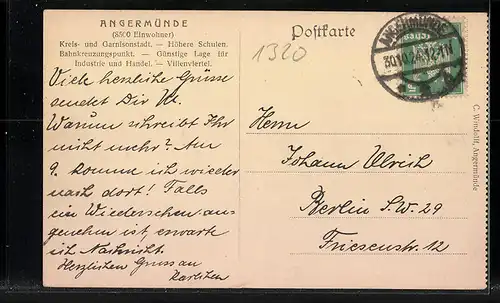 ANGERMÜNDE
(8500 Einwohner)
Kreis- und Garnisonstadt. — Höhere Schulen.
Bahnkreuzungspunkt. — Günstige Lage für
Industrie und Handel. — Villenviertel.
Viele herzliche Grüsse
sendet Dir
Warum schreibt Ihr
nicht mehr? Am
9. komme ich wieder
nach dort! Falls
ein Wiedersehen an-
genehm ist erwarte
ich Nachricht
Herzlichen Gruss an
Postkarte
1320
ANGERMÜNDE
12-1N
Herrn
Johann Ulrich
Berlin S.W. 29
Friesenstr. 12
C. Windolff, Angermünde